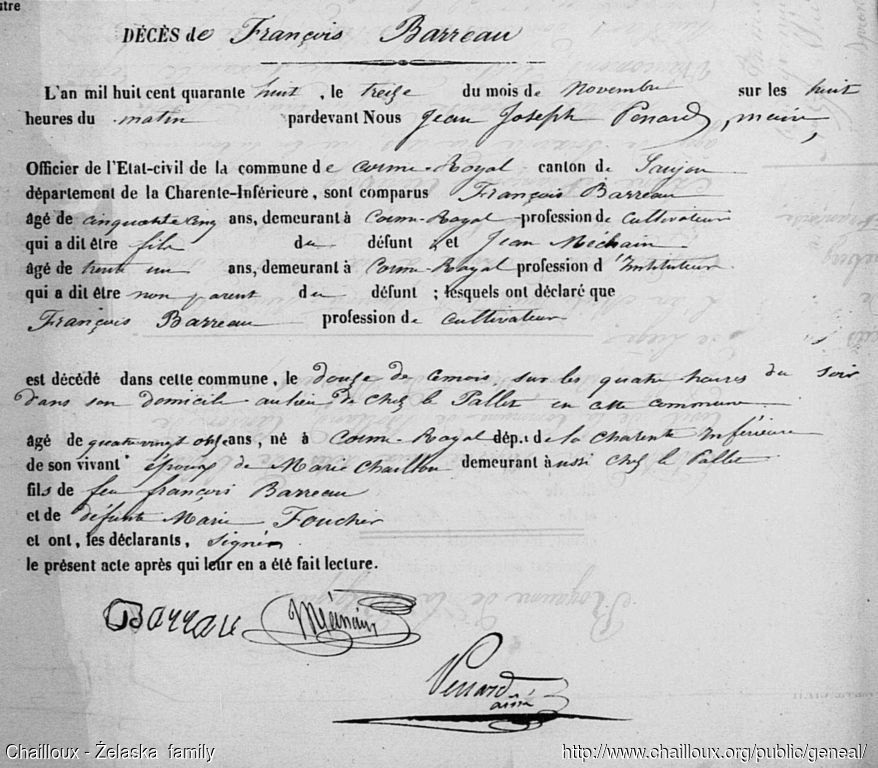 stre
DÉCÈS de François Barreau
L'an mil huit cent quarante huit, le treize du mois de novembre sur les huit
heures du matin pardevant Nous Jean Joseph Penard, maire,
Officier de l'Etat-civil de la commune de Corme-Royal canton de Saujon
département de la Charente-Inférieure, sont comparus François Barreau
âgé de cinquante cinq ans, demeurant à Corme-Royal profession de cultivateur
qui a dit être fils du défunt, et Jean Méchain
âgé de trente un ans, demeurant à Corme-Royal profession d'Instituteur
qui a dit être non parent du défunt ; lesquels ont déclaré que
François Barreau profession de cultivateur
est décédé dans cette commune, le douze de cemois, sur les quatre heures du soir
dans son domicile au lieu de chez le Pallet en cette commune
âgé de quatre vingt ans, né à Corme-Royal dép.t de la Charente Inférieure
de son vivant époux de Marie Chaillou demeurant à aussi chez le Pallet
fils de feu françois Barreau
et de défunte Marie Foucher
et ont, les déclarants, signé
le présent acte après qui leur en a été fait lecture.
Barrare Méchain
Penard
ainé
Chailloux - Želaska family http://www.chailloux.org/public/geneal/